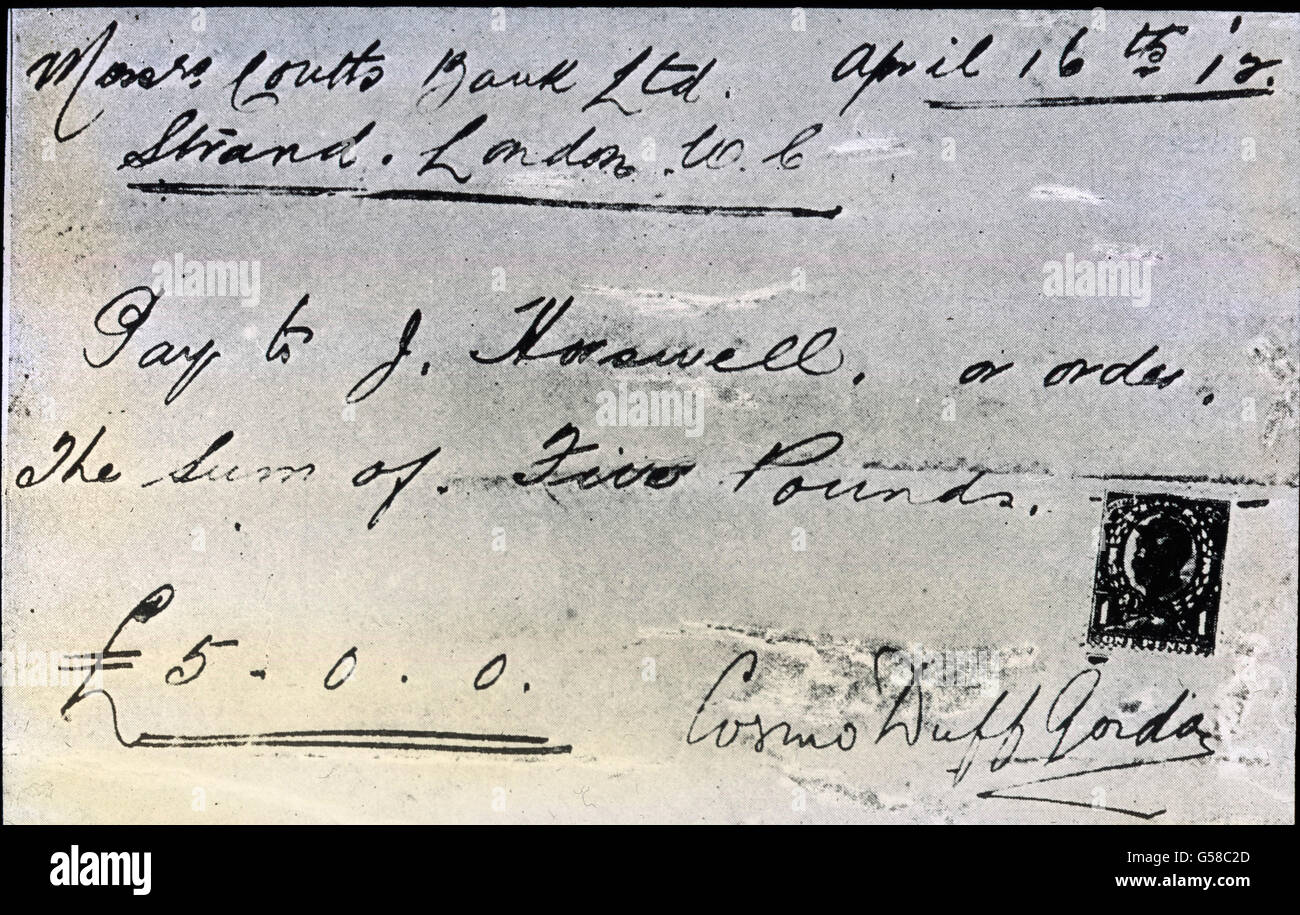 Messrs Coutts Bank Ltd. April 16th '12.
Strand. London. W.C
Pay to J. Horswell. or order.
The Sum of. Five Pounds.
ONE PENNY
£5 - 0 . 0.
Cosmo Duff Gordon
alamy
a
alamy
a
a
alamy
a
alamy
a
alamy
Image ID: G58C2D
www.alamy.com